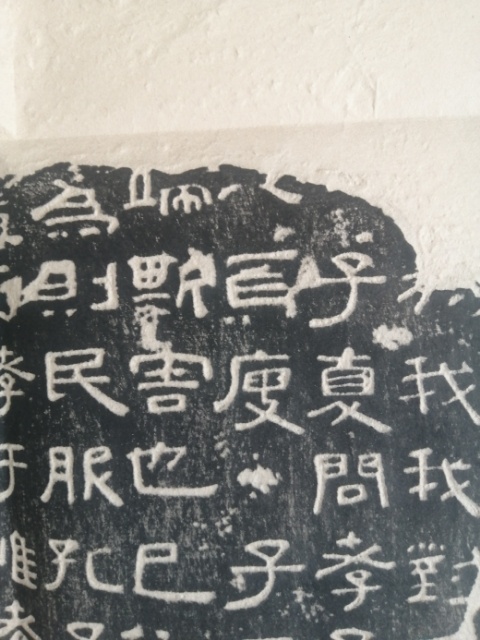 我我對
子夏問孝
人廋子
端斯害也已
為則民服孔
孝于惟孝